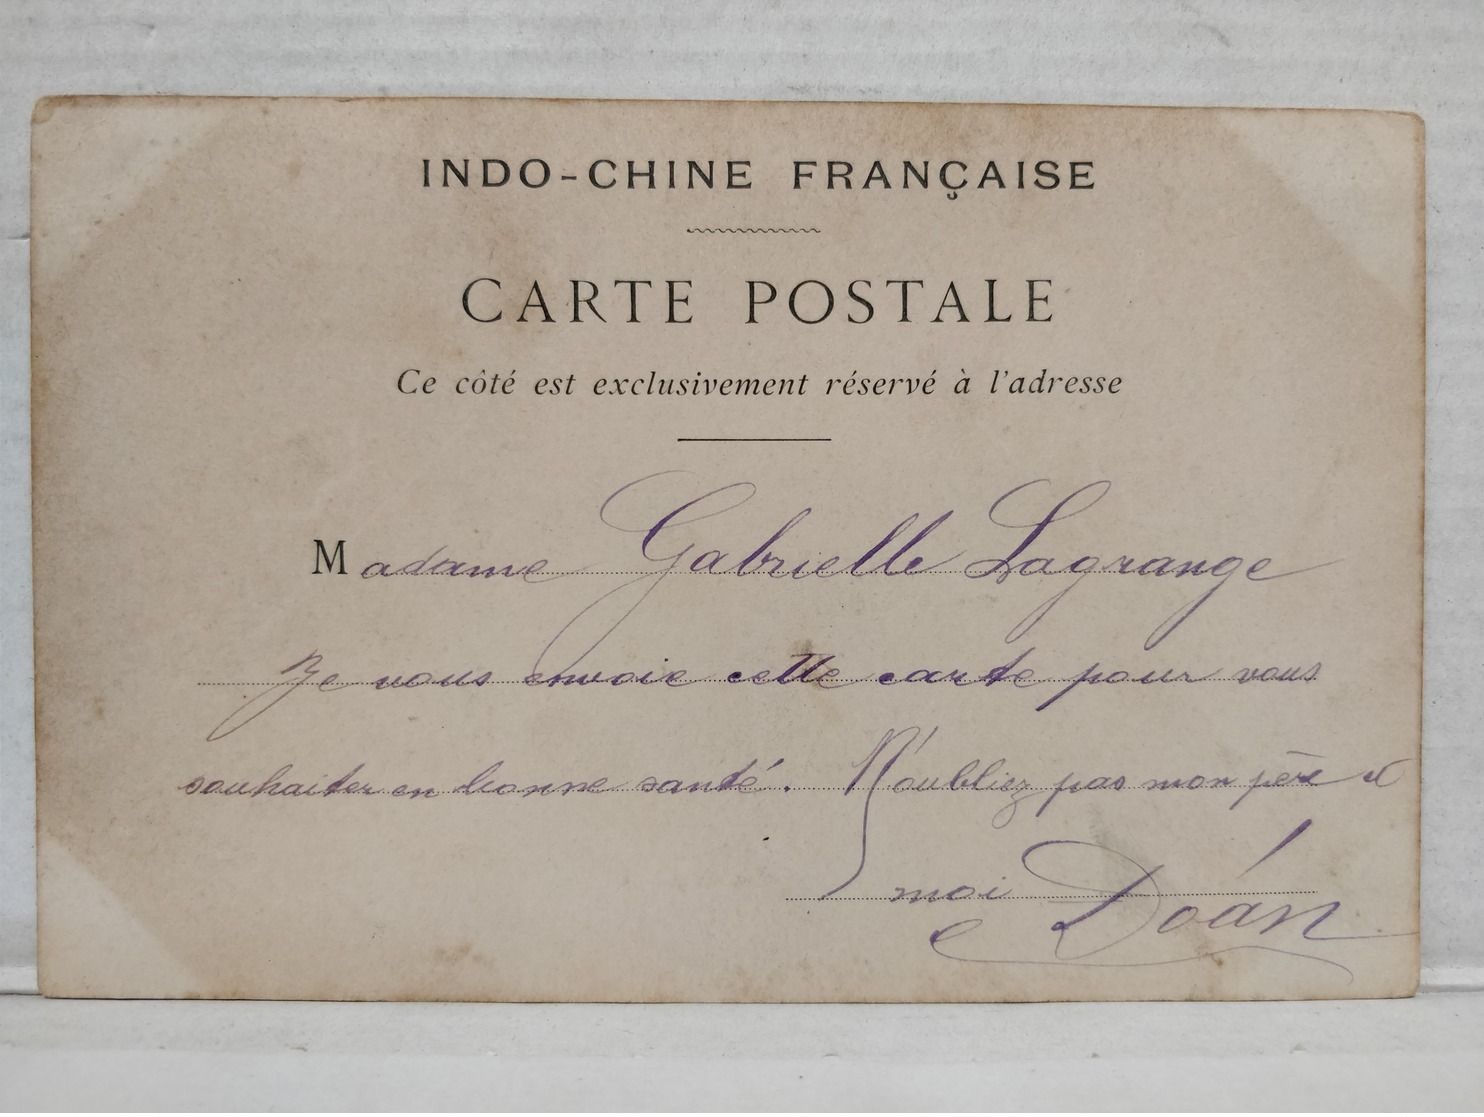 INDO-CHINE FRANÇAISE
CARTE POSTALE
Ce côté est exclusivement réservé à l'adresse
Madame Gabrielle Lagrange
Je vous envoie cette carte pour vous
souhaiter en bonne santé. N'oubliez pas mon père et
moi Doán